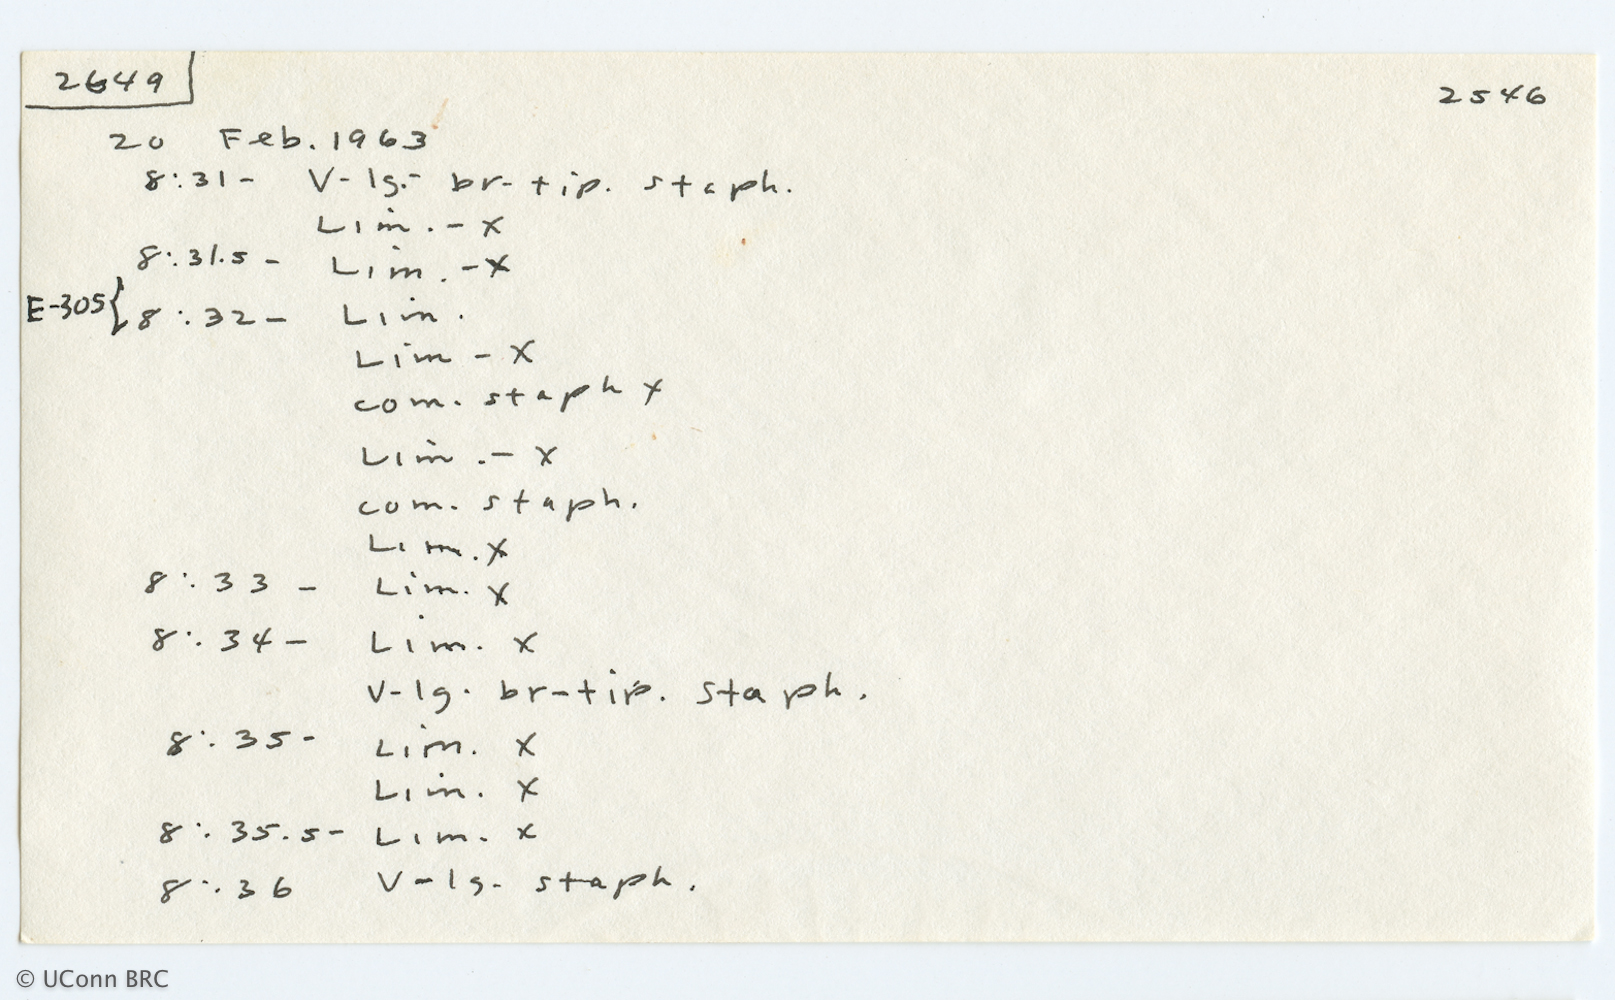 2649
2546
20 Feb. 1963
8:31- V-lg.- br-tip. staph.
Lim.-x
8:31.5- Lim.-x
E-305{ 8:32- Lim.
Lim-X
com. staph x
Lim.-x
com. staph.
Lim.x
8:33- Lim. x
8:34- Lim. x
V-lg. br-tip. staph.
8:35- Lim. x
Lim. x
8:35.5- Lim. x
8:36 V-lg. staph.
© UConn BRC